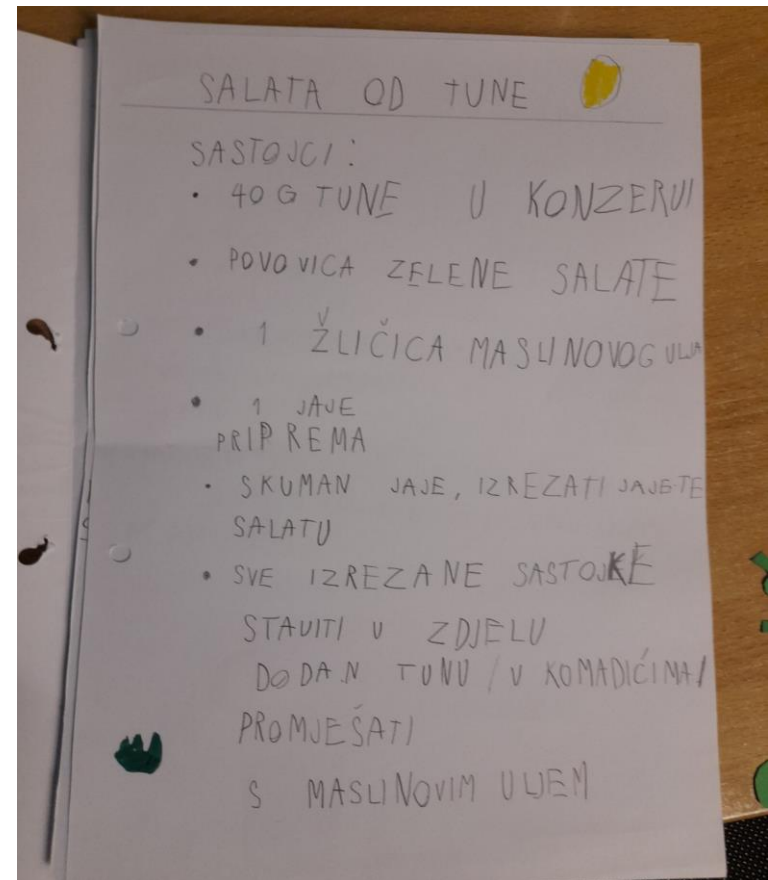 SALATA OD TUNE
SASTOJCI:
• 40 G TUNE U KONZERVI
• POVOVICA ZELENE SALATE
• 1 ŽLIČICA MASLINOVOG ULJA
• 1 JAJE
PRIPREMA
• SKUMAN JAJE, IZREZATI JAJE TE
SALATU
• SVE IZREZANE SASTOJKE
STAVITI U ZDJELU
DODAN TUNU / U KOMADIĆIMA /
PROMJEŠATI
S MASLINOVIM ULJEM